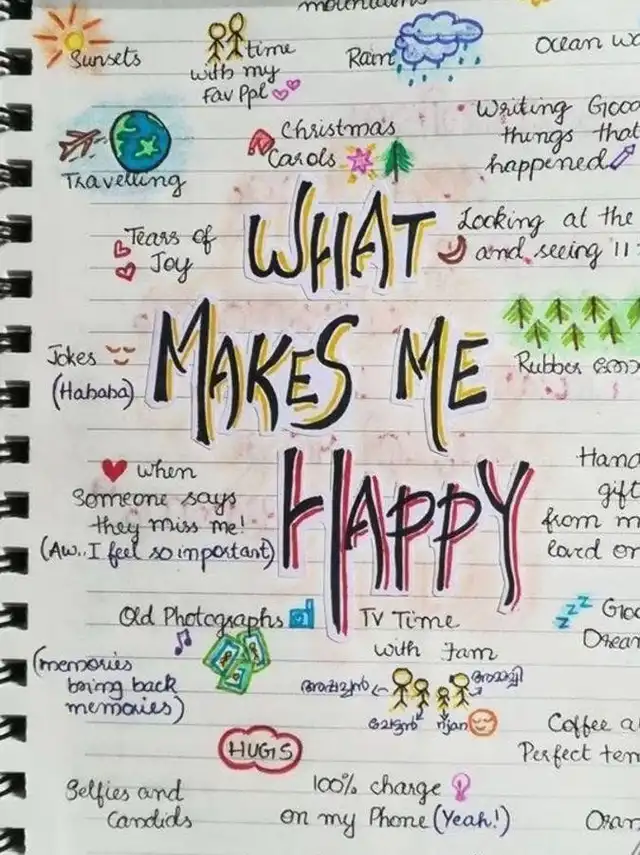 mountains
Sunsets
time
with my
Fav Ppl
Rain
Ocean wa
Travelling
Christmas
Carols
Writing Good
things that
happened
Tears of
Joy
WHAT
Looking at the
and seeing 11:
Jokes
(Hahaha)
MAKES ME
Rubber
when
Someone says
they miss me!
(Aw.. I feel so important)
HAPPY
Hand
gift
from m
loved on
Old Photographs
(memories
bring back
memories)
TV Time
with Fam
അപ്പച്ചൻ
അമ്മച്ചി
ചേട്ടൻ
njan
zzz Goo
Dream
HUGS
Coffee a
Perfect tem
Selfies and
Candids
100% charge
on my Phone (Yeah!)
Oran